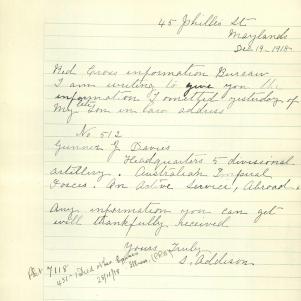 45 Phillis St
Maylands
Dec 19 - 1918
Red Cross information Bureau
I am writing to give you the
information I omitted yesterday of
My Son in Law address
No 512
Gunner J Davies
Headquarters 5 divisional
artillery. Australian Imperial
Forces. On Active Service, Abroad
Any information you can get
will thankfully received
Yours Truly
S. Addison
7118